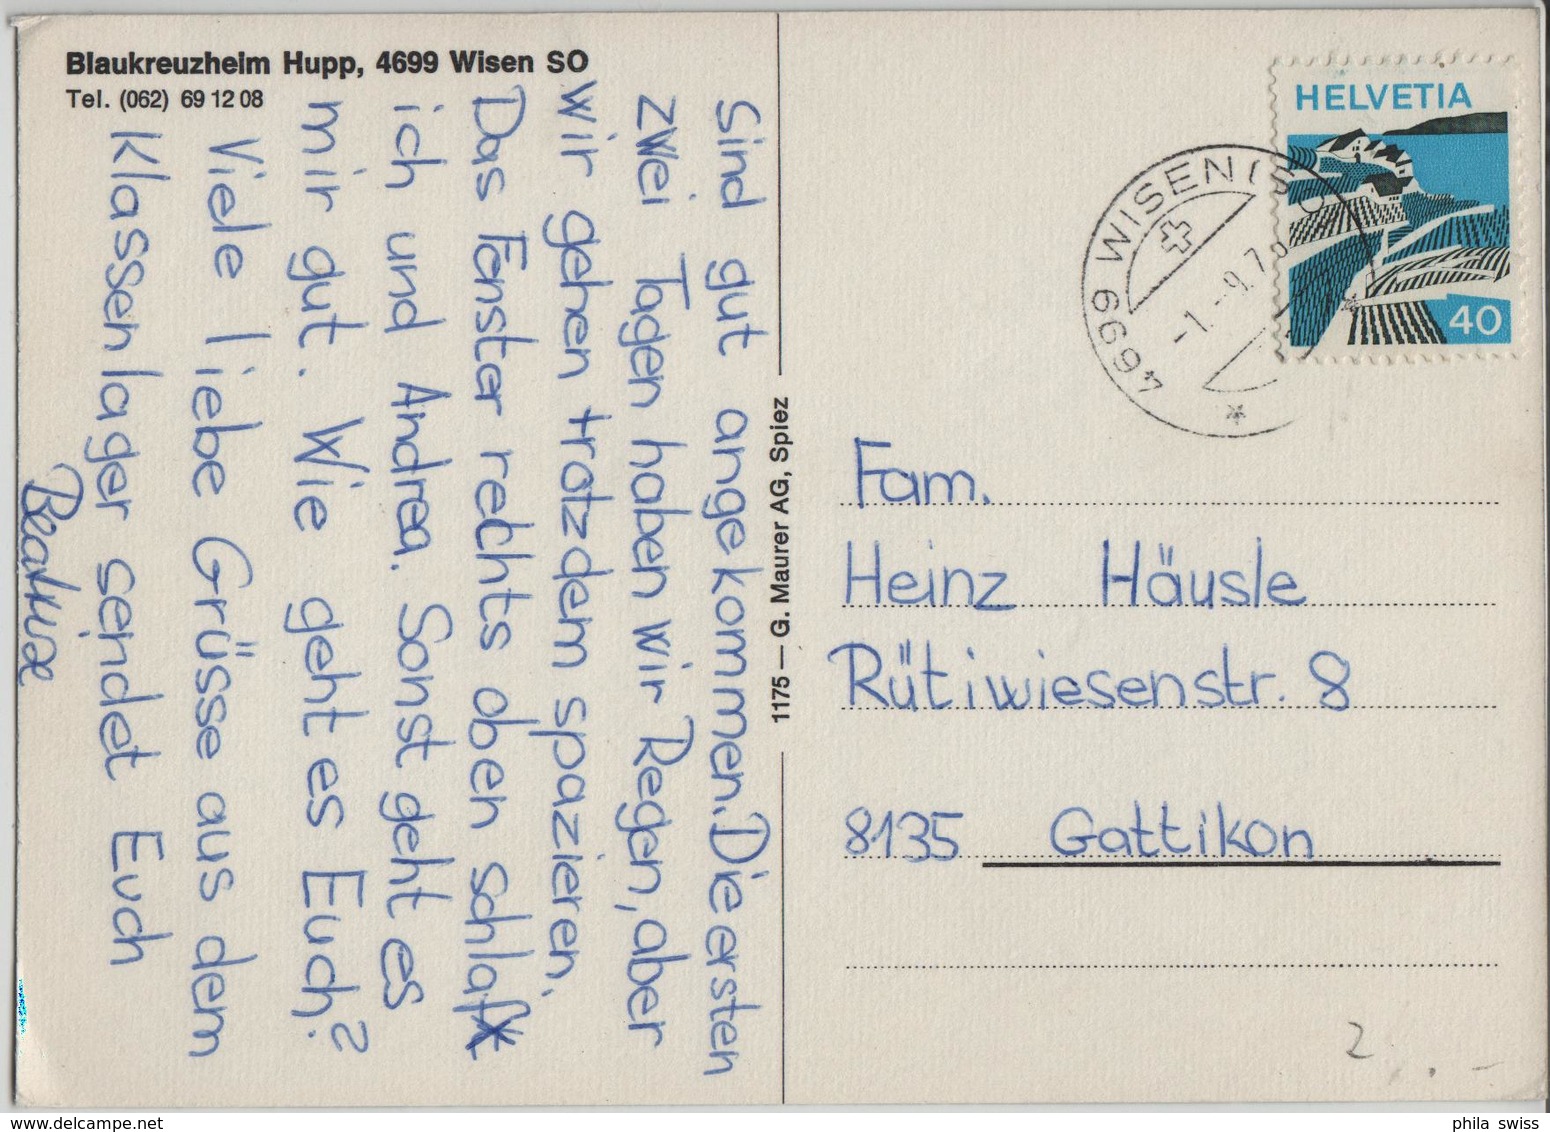 Blaukreuzheim Hupp, 4699 Wisen SO
Tel. (062) 69 12 08
Sind gut angekommen. Die ersten
zwei Tagen haben wir Regen, aber
wir gehen trotzdem spazieren.
Das Fenster rechts oben schlaf
ich und Andrea. Sonst geht es
mir gut. Wie geht es Euch?
Viele liebe Grüsse aus dem
Klassenlager sendet Euch
Beatrice
1175 — G. Maurer AG, Spiez
HELVETIA
40
4699 WISEN (SO)
-1.-9.7
Fam.
Heinz Häusle
Rütiwiesenstr. 8
8135 Gattikon
2
phila swiss